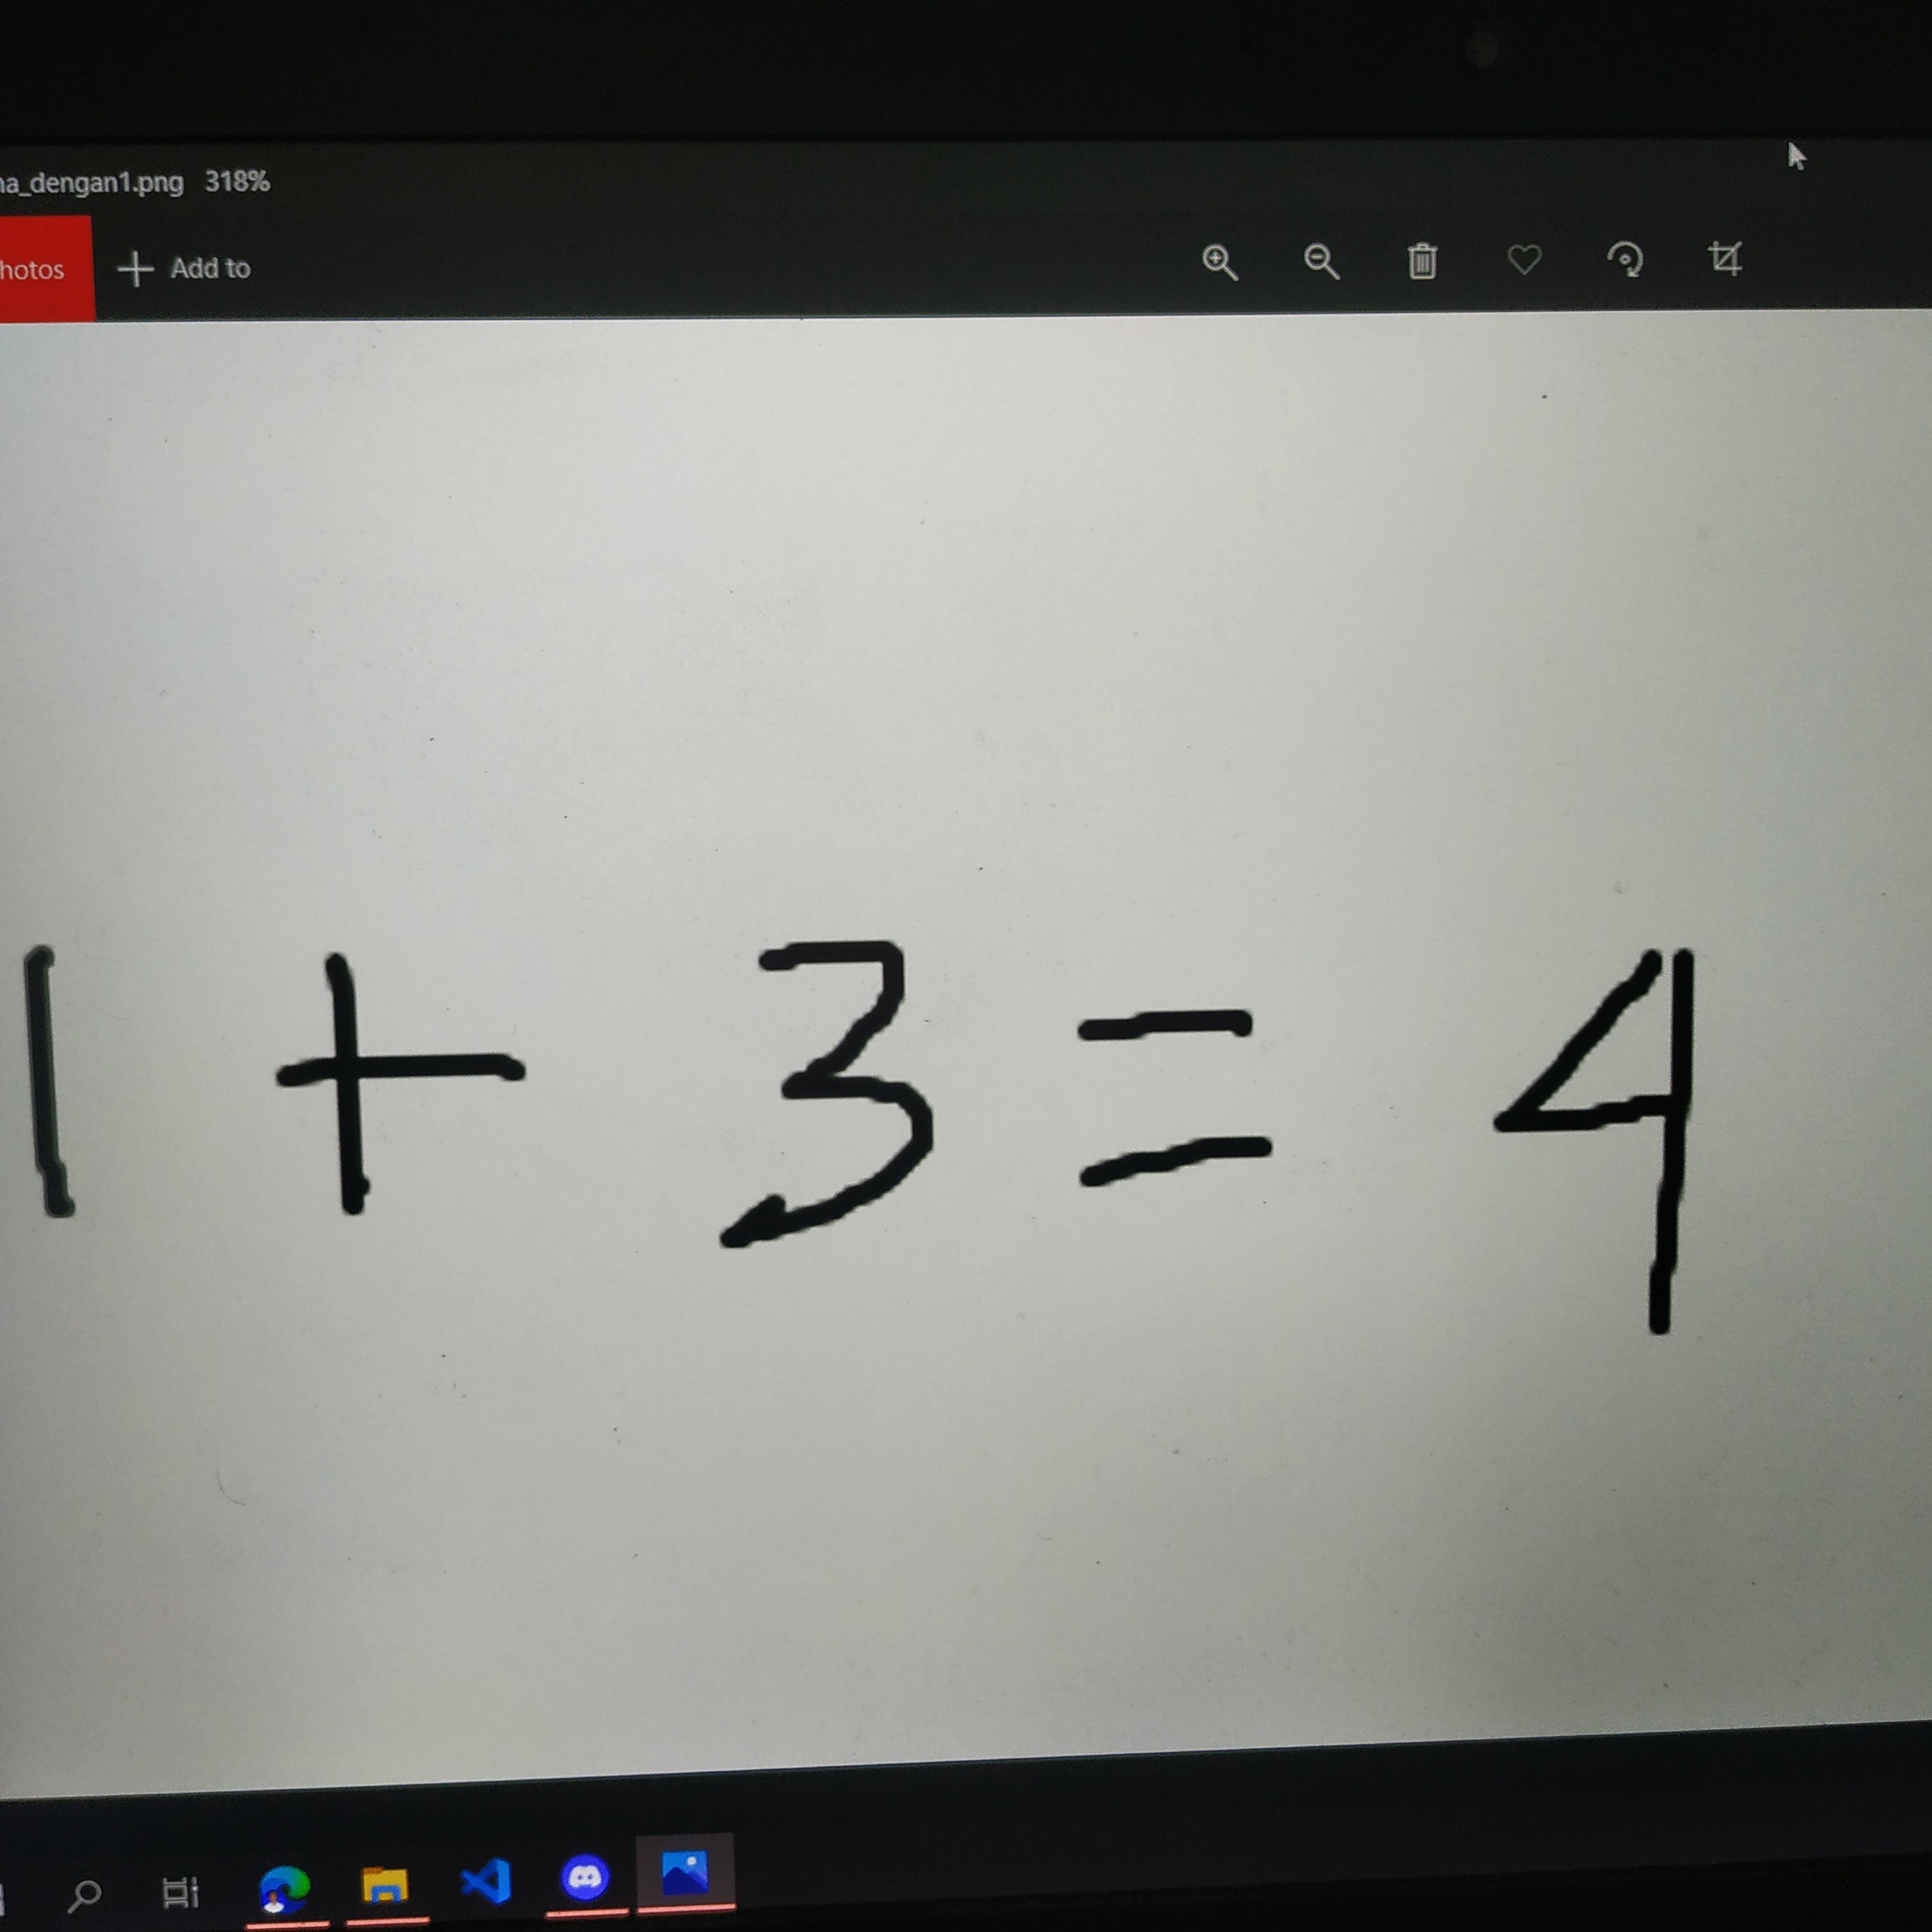 na_dengan1.png 318%
hotos Add to
1 + 3 = 4